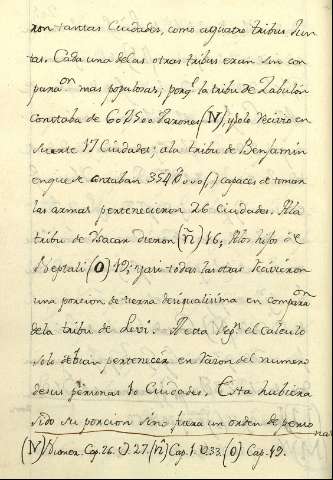 ron tantas Ciudades, como a quatro tribus Jun
tas. Cada una de las otras tribus eran sin com
paraon. mas populosas; porqe. la tribu de Zabulón
constaba de 60U500 Varones (N), y solo recivio en
suerte 17 Ciudades; a la tribu de Benjamin
en que se contaban 35U000 () capaces de tomar
las armas pertenecieron 26 Ciudades. A la
tribu de Isacar dieron (ñ) 16; A los hijos de
Neptali (O) 19; y asi todas las otras recivieron
una porcion de tierra desigualisima en comparaon.
de la tribu de Levi. A esta segn. el calculo
solo debian pertenecer en razon del numero
de sus personas 10 Ciudades. Esta hubiera
sido su porcion sino fuera un orden de perso
nas
(N) Numer. Cap. 26. V. 27. (ñ) Cap. 1. V. 33. (O) Cap. 19.